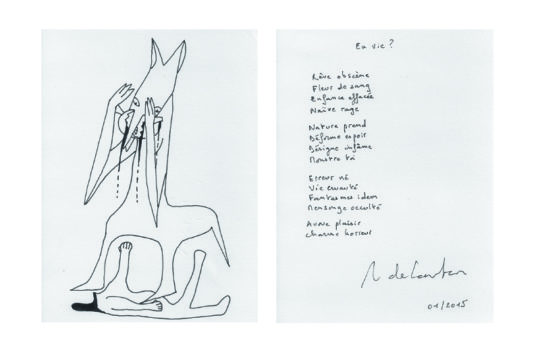 En vie ?
Rêve obscène
Fleur de sang
Enfance effacée
Naïve rage
Nature prend
Déforme espoir
Désigne infâme
Monstre toi
Erreur né
Vie cruauté
Fantasmes idem
Mensonge occulté
Avoue plaisir
Charme horreur
01/2015